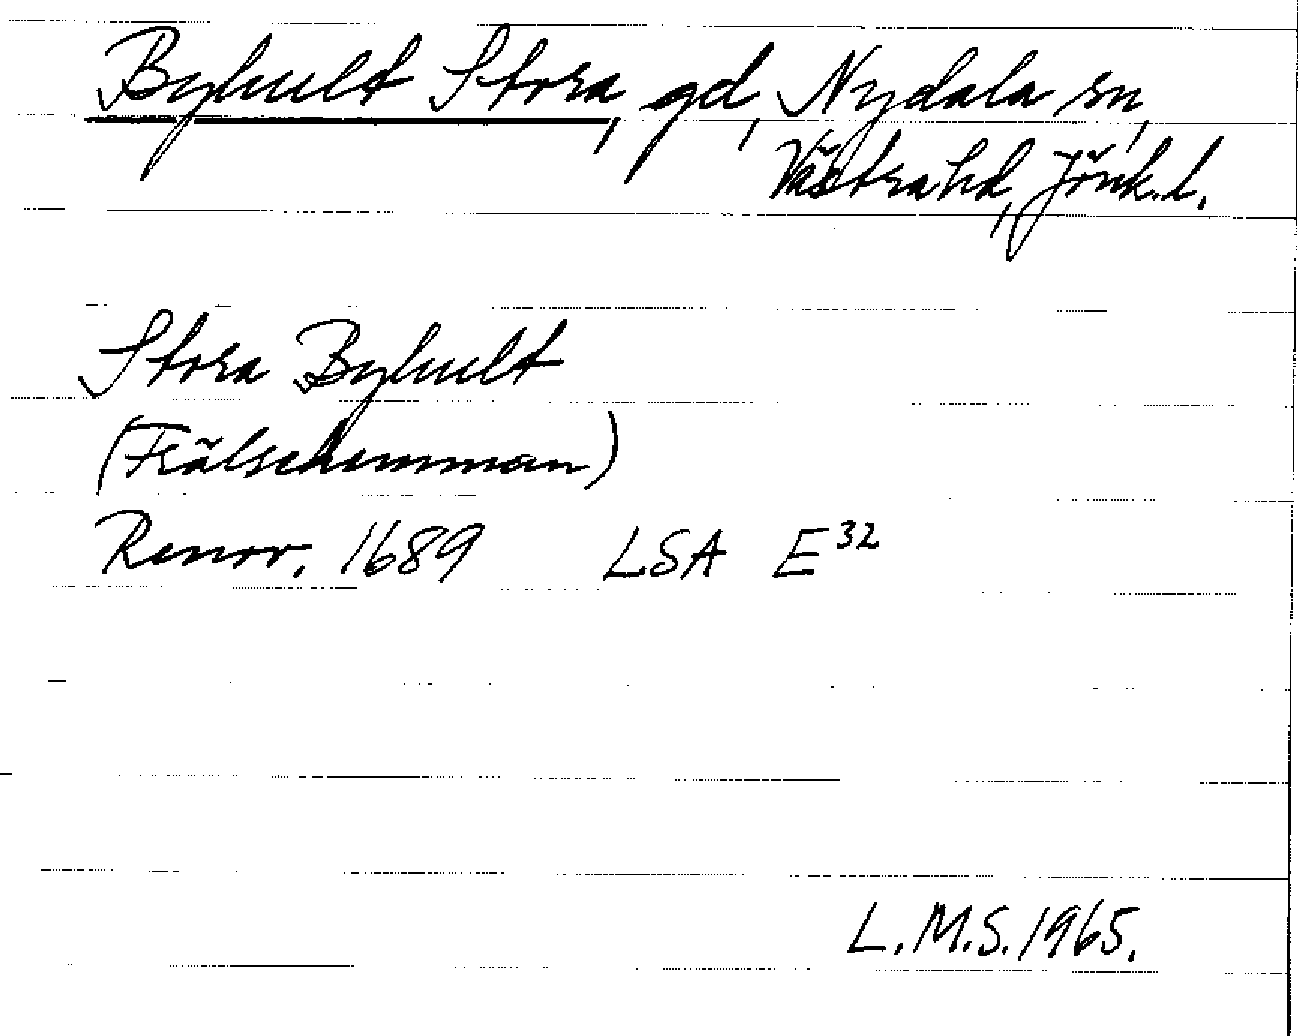 Byhult Stora, gd, Nydala sn,
Västra hd, Jönk. l.
Stora Byhult
(Frälsehemman)
Renov. 1689 LSA E³²
L.M.S. 1965.